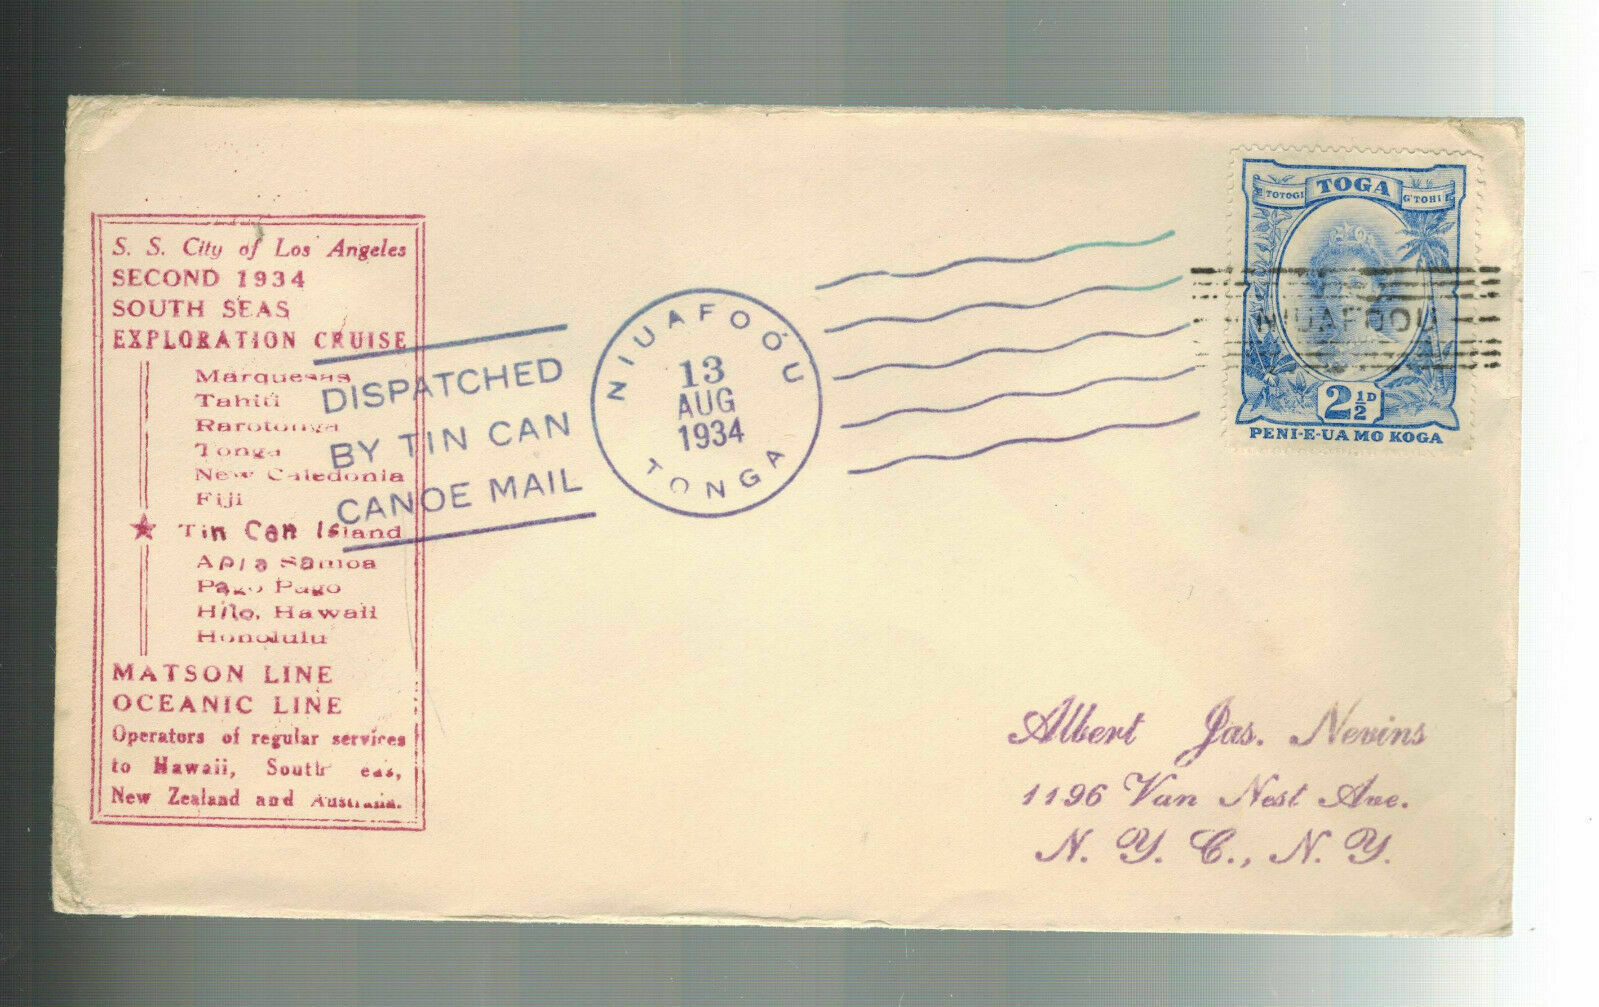 S. S. City of Los Angeles
SECOND 1934
SOUTH SEAS
EXPLORATION CRUISE
Marquesas
Tahiti
Rarotonga
Tonga
New Caledonia
Fiji
Tin Can Island
Apia Samoa
Pago Pago
Hilo, Hawaii
Honolulu
MATSON LINE
OCEANIC LINE
Operators of regular services
to Hawaii, South eas,
New Zealand and Australia.
DISPATCHED
BY TIN CAN
CANOE MAIL
NIUAFOÓU
13
AUG
1934
TONGA
TOTOGI TOGA G'TOHI
NIUAFOOU
2½D
PENI-E-UA MO KOGA
Albert Jas. Nevins
1196 Van Nest Ave.
N. Y. C., N. Y.